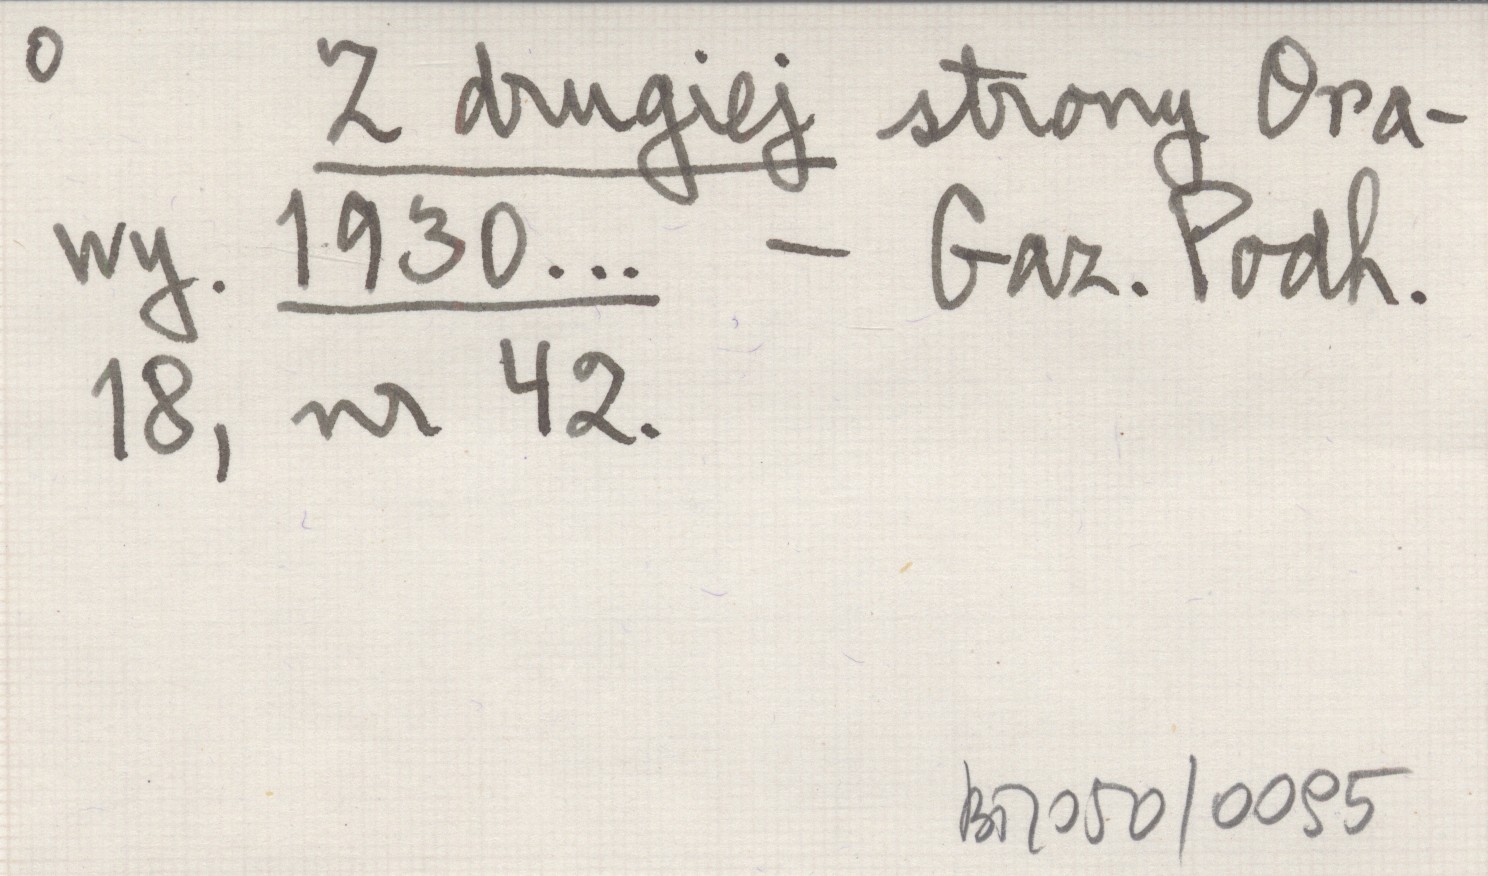 o Z drugiej strony Ora-
wy. 1930... — Gaz. Podh.
18, nr 42.